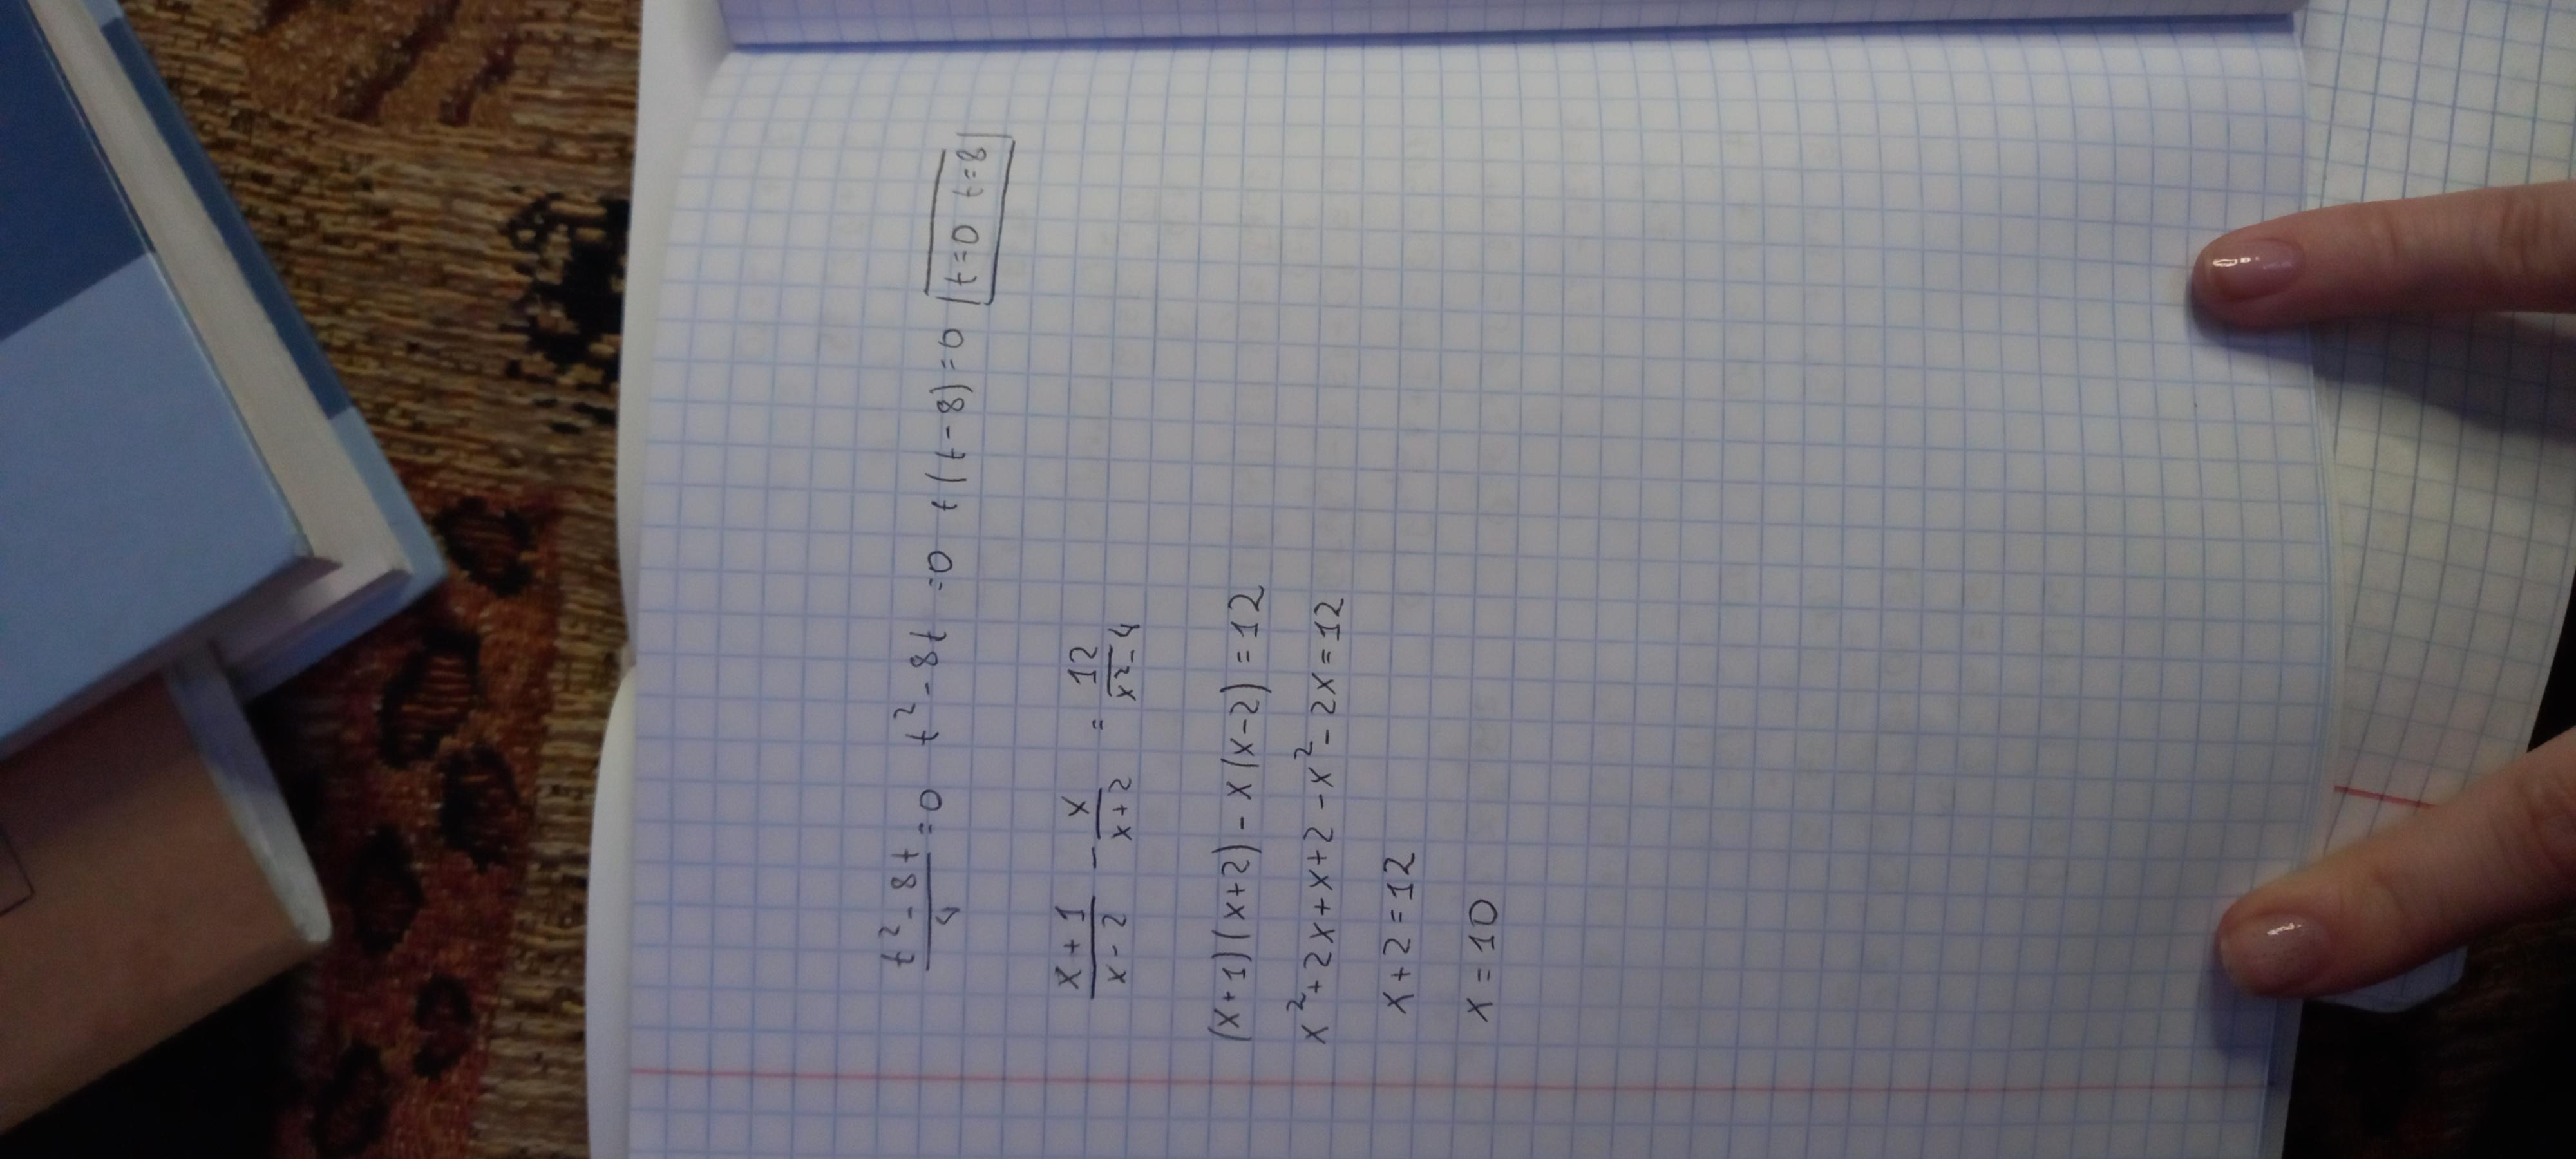 (t² - 8t)/4 = 0 t² - 8t = 0 t(t - 8) = 0 t = 0 t = 8
(x + 1)/(x - 2) - x/(x + 2) = 12/(x² - 4)
(x + 1)(x + 2) - x(x - 2) = 12
x² + 2x + x + 2 - x² - 2x = 12
x + 2 = 12
x = 10